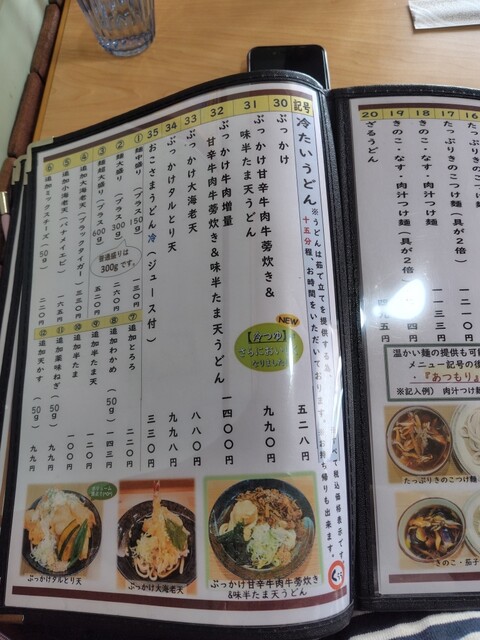 記号 冷たいうどん
※うどんは茹で立てを提供する為、十五分程、お時間をいただいております。
お持ち帰りも出来ます。
30 ぶっかけ 五二八円
31 ぶっかけ甘辛牛肉牛蒡炊き&味半たま天うどん 九九〇円
32 ぶっかけ牛肉増量甘辛牛肉牛蒡炊き&味半たま天うどん 一四〇〇円
33 ぶっかけ大海老天 八八〇円
34 ぶっかけタルとり天 九九八円
35 おこさまうどん冷(ジュース付) 三三〇円
NEW
【冷つゆ】
① 麺中盛り(プラス150g) 一三〇円
② 麺大盛り(プラス300g) 二六〇円
③ 麺超大盛り(プラス600g) 五二〇円
普通盛りは
300gです。
④ 追加大海老天(ブラックタイガー) 三三〇円
⑤ 追加小海老天(バナメイエビ) 一六五円
⑥ 追加ミックスチーズ(50g) 二二〇円
⑦ 追加とろろ 二二〇円
⑧ 追加わかめ(50g) 一四三円
⑨ 追加半たま天 一二〇円
⑩ 追加半たま 一〇〇円
⑪ 追加薬味ねぎ(50g) 九九円
⑫ 追加天かす(50g) 九九円
ぶっかけタルとり天
ぶっかけ大海老天
ぶっかけ甘辛牛肉牛蒡炊き
&味半たま天うどん
16
17 たっぷりきのこつけ麺(具が2倍)
18 きのこ・なす・肉汁つけ麺
19 きのこ・なす・肉汁つけ麺(具が2倍)
20 ざるうどん 四九五円
温かい麺の提供も可能
メニュー記号の後
・『あつもり』
※記入例) 肉汁つけ麺
たっぷりきのこつけ麺
きのこ・茄子